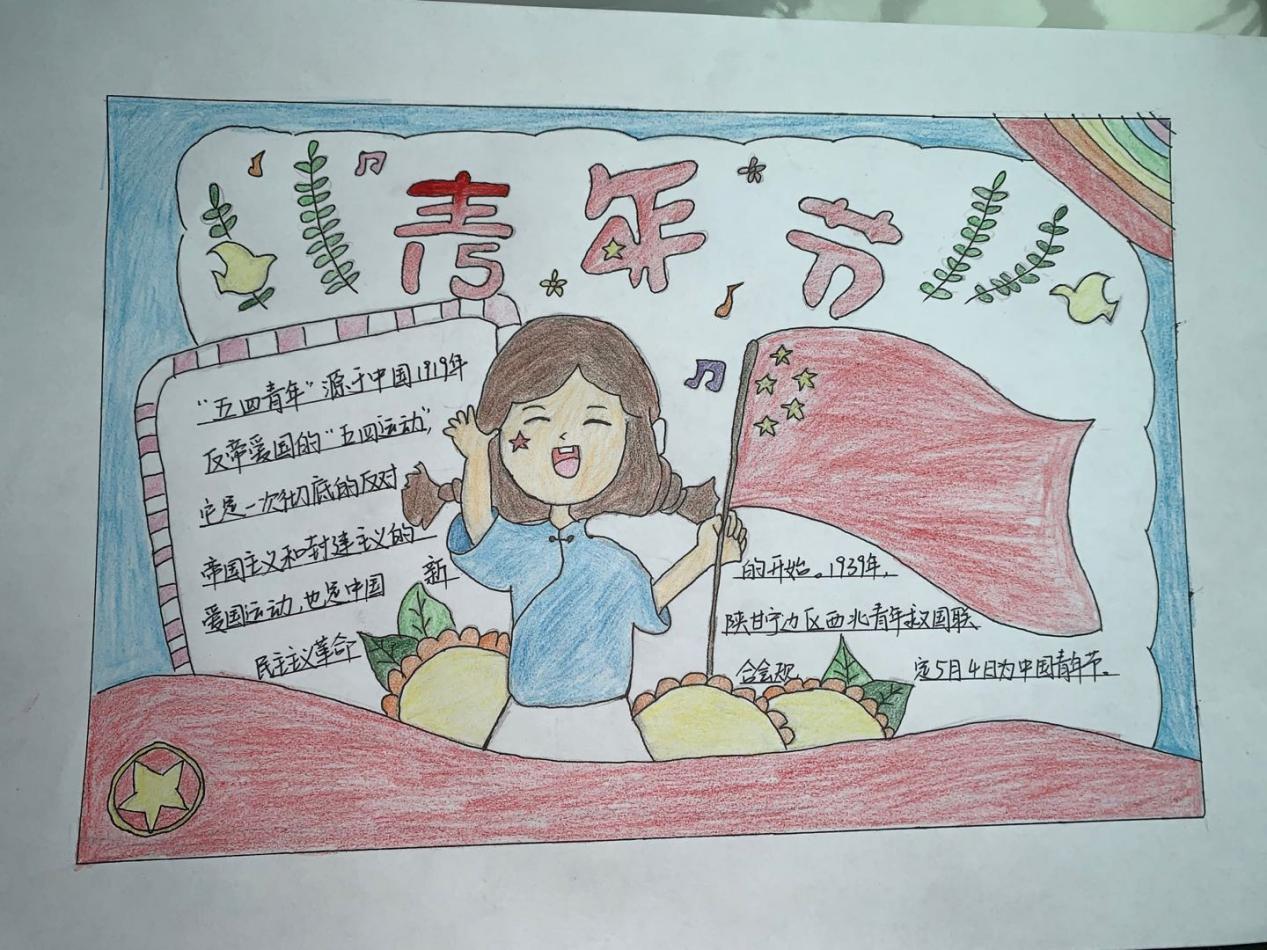 青年节
"五四青年"源于中国1919年
反帝爱国的"五四运动",
它是一次彻底的反对
帝国主义和封建主义的
爱国运动,也是中国
新
民主主义革命
的开始。1939年,
陕甘宁边区西北青年救国联
合会规
定5月4日为中国青年节。